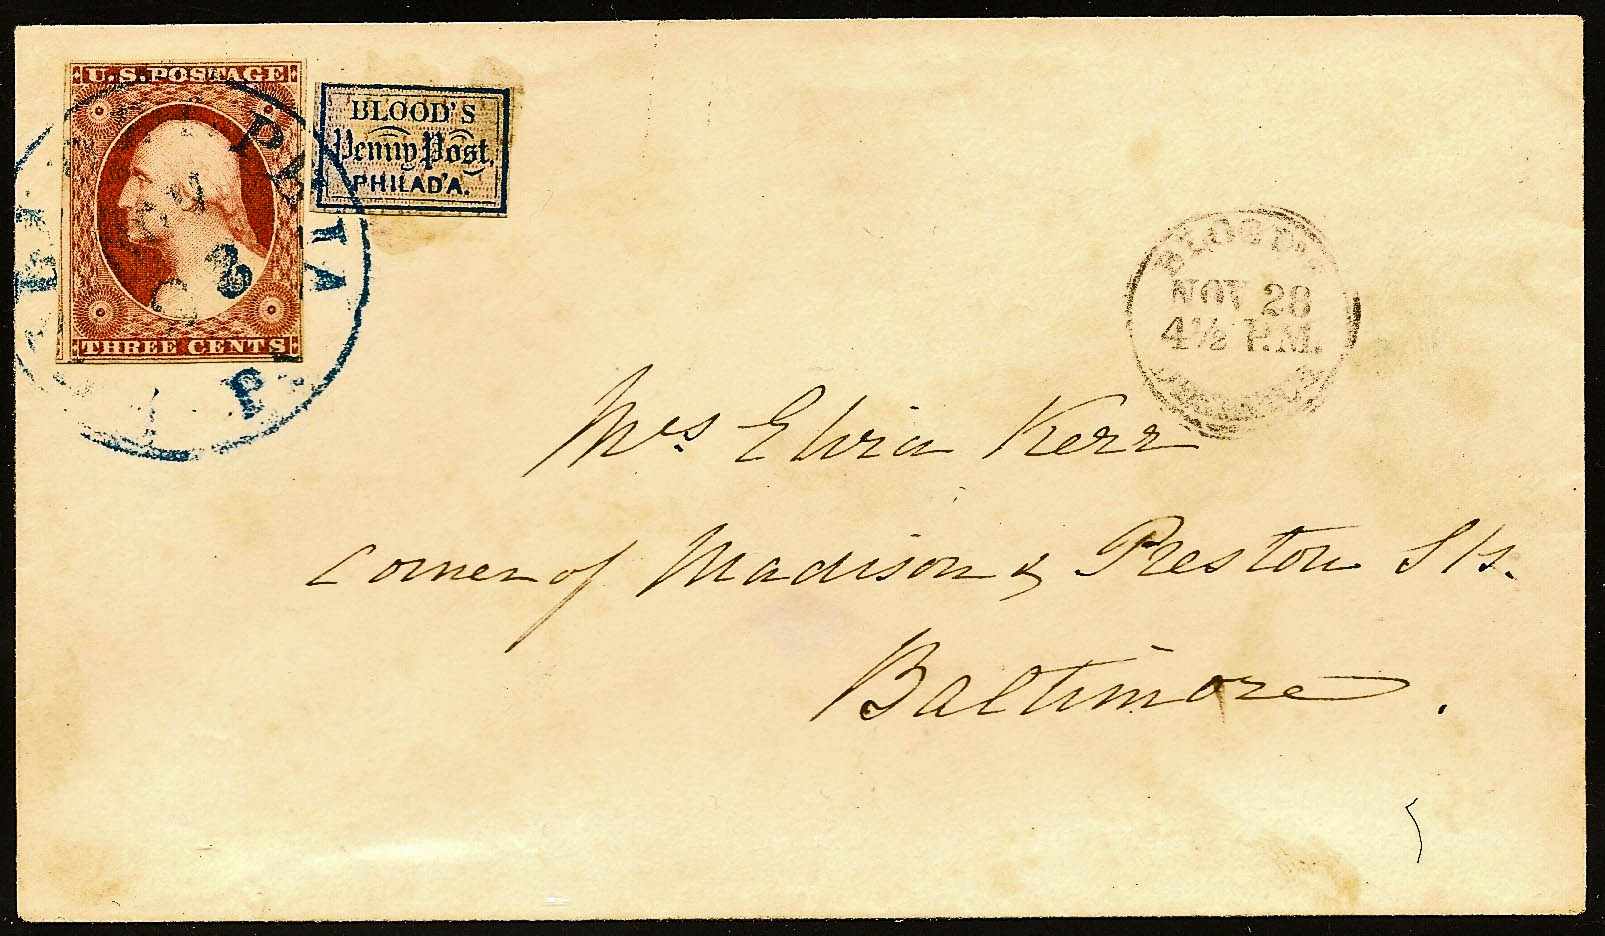 U.S. POSTAGE
THREE CENTS
BLOOD'S
Penny Post,
PHILAD'A.
BLOOD'S
NOV 28
4½ P.M.
Mrs Elvia Kerr
Corner of Madison & Preston Sts.
Baltimore.